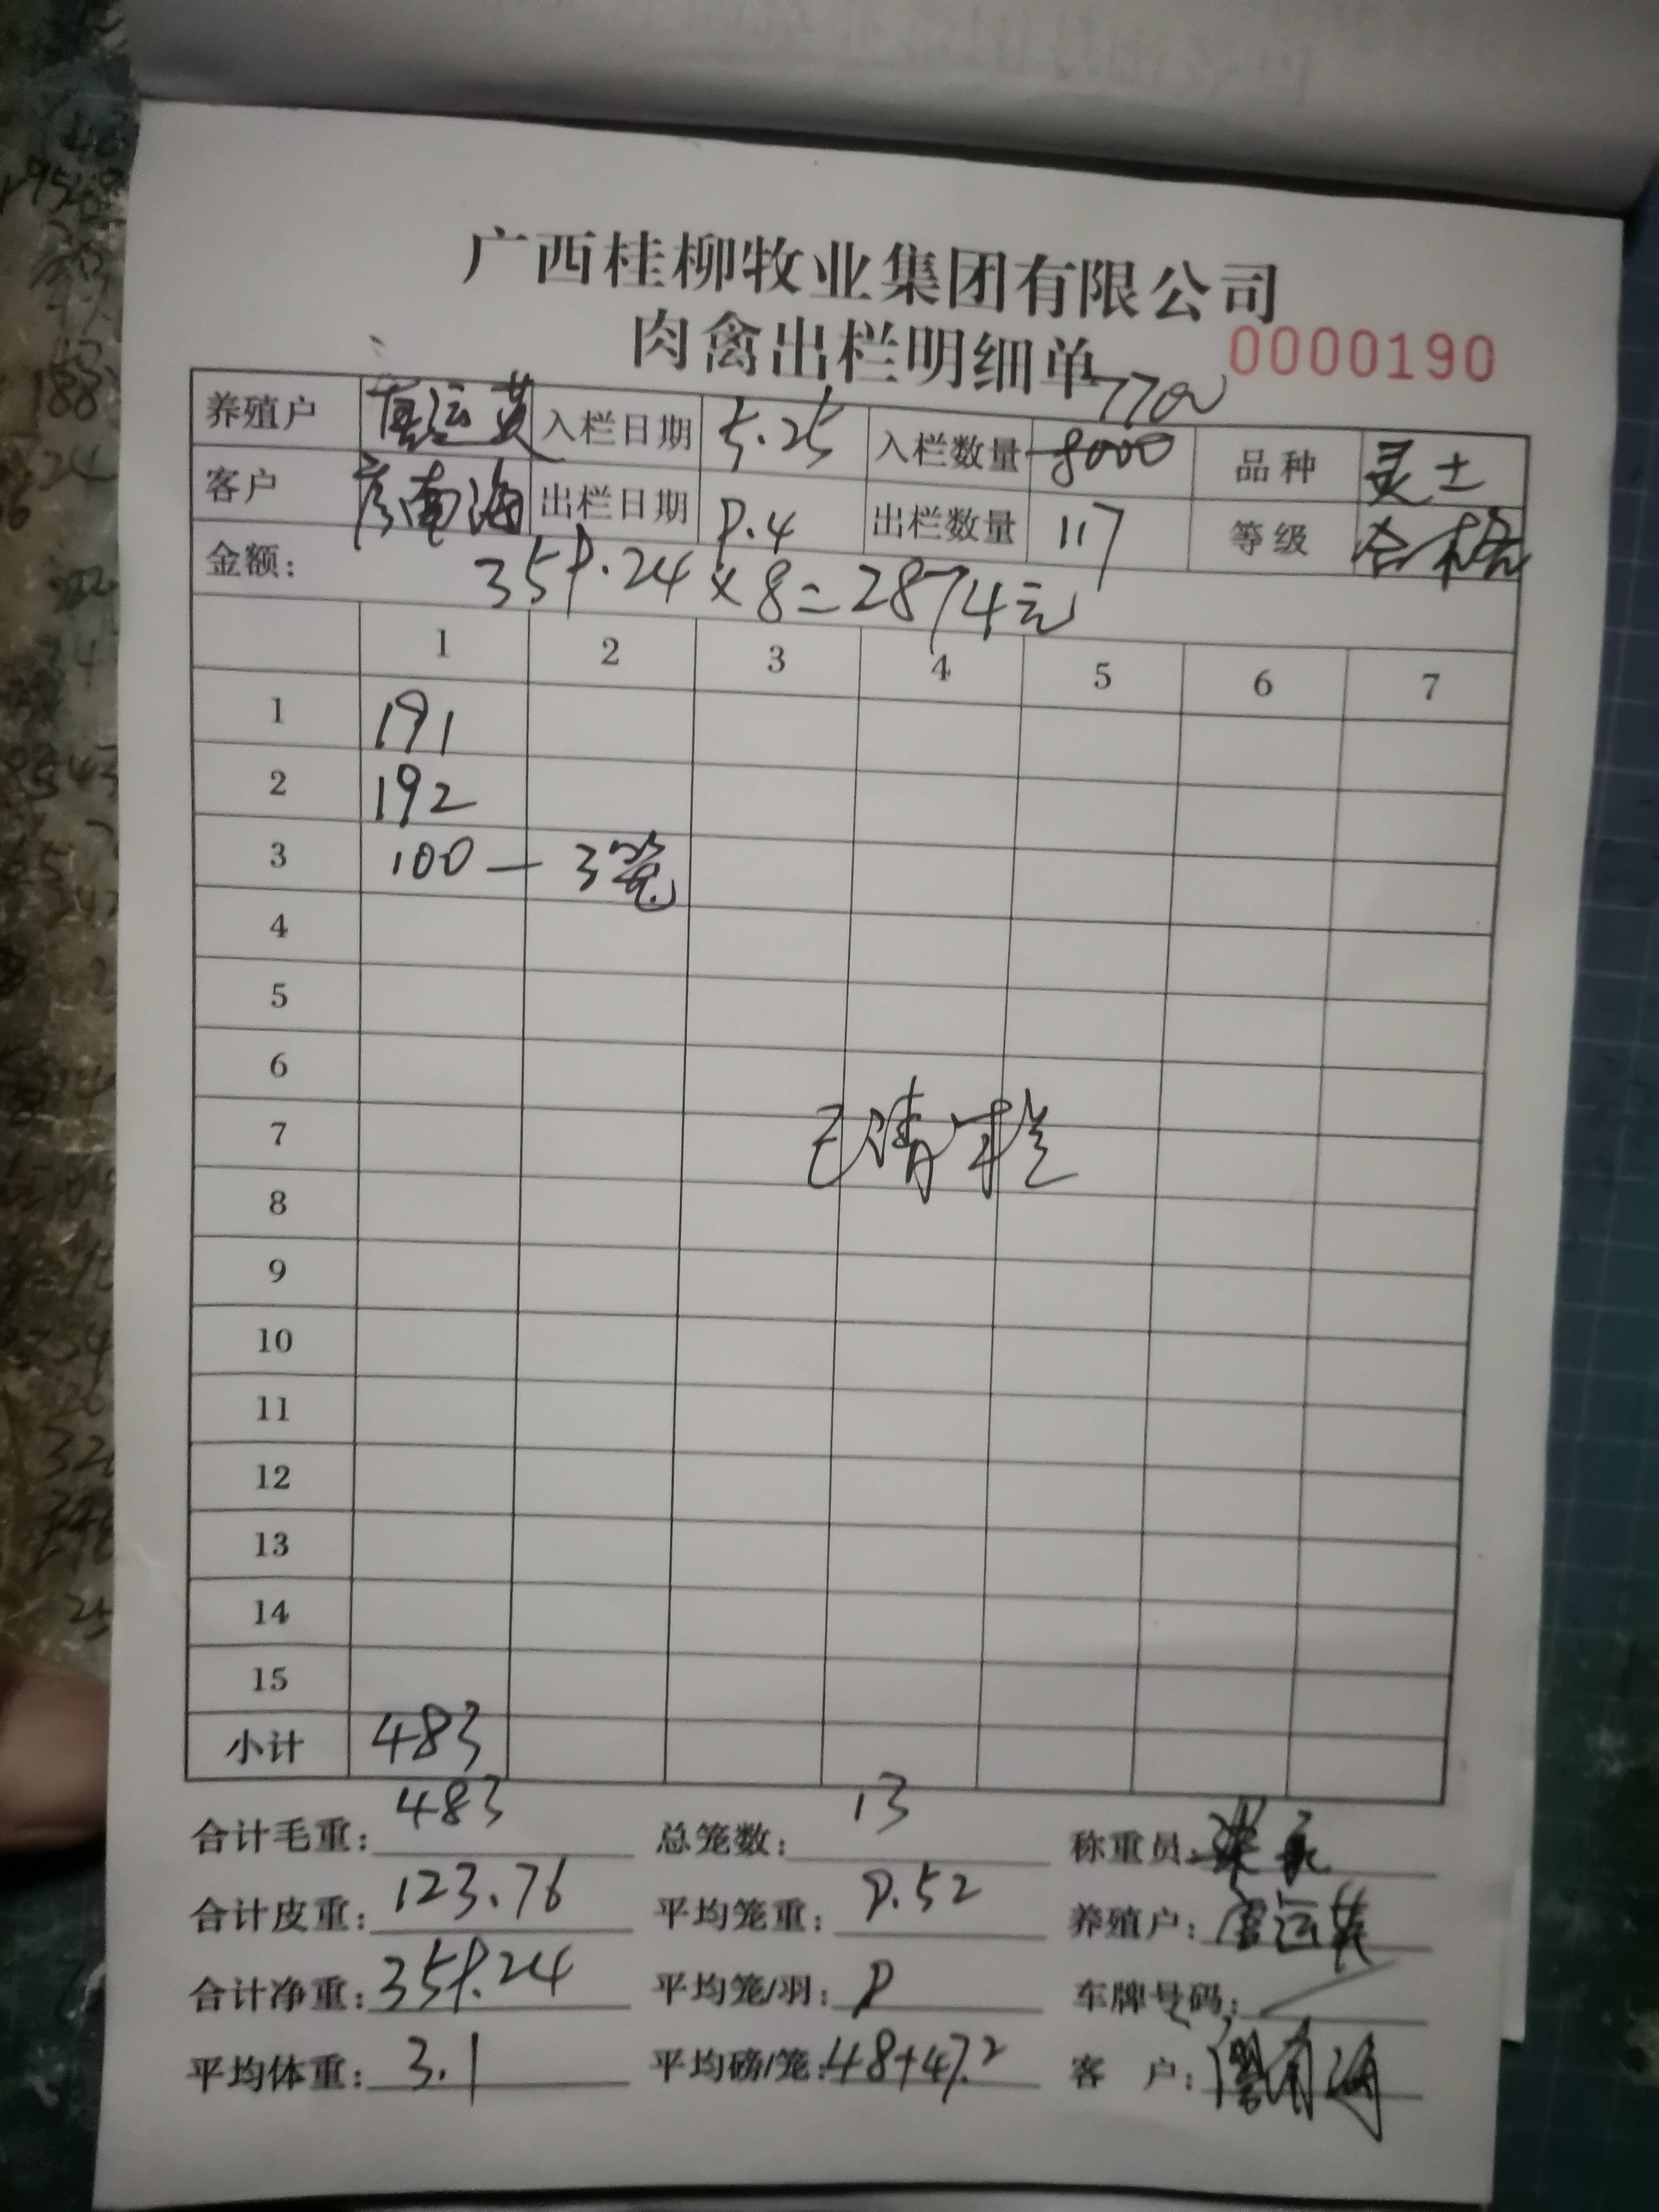 广西桂柳牧业集团有限公司
肉禽出栏明细单 0000190
7700
养殖户 唐运英 入栏日期 5.25 入栏数量 8000 品种 灵土
客户 南海 出栏日期 9.4 出栏数量 117 等级 合格
金额: 359.24×8=2874元
1 2 3 4 5 6 7
1 191
2 192
3 100 — 3笼
4
5
6
7 已清栏
8
9
10
11
12
13
14
15
小计 483
合计毛重: 483 总笼数: 13 称重员:
合计皮重: 123.76 平均笼重: 9.52 养殖户: 唐运英
合计净重: 359.24 平均笼/羽: 9 车牌号码: /
平均体重: 3.1 平均磅/笼: 48+47.2 客 户: 南海